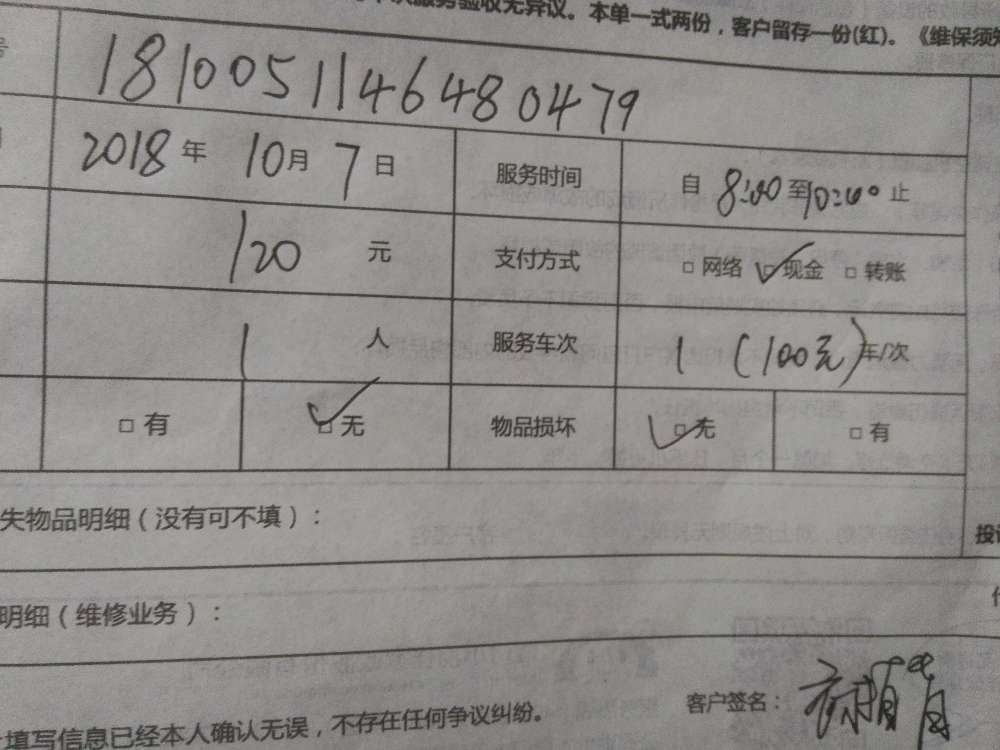 服务验收无异议。本单一式两份，客户留存一份(红)。《维保须知
号 181005114648 0479
2018 年 10 月 7 日 服务时间 自 8:00 至 10:00 止
120 元 支付方式 □ 网络 □ 现金 □ 转账
1 人 服务车次 1 (100元) 车/次
□ 有 □ 无 物品损坏 □ 无 □ 有
失物品明细（没有可不填）：
投诉
明细（维修业务）：
客户签名：
填写信息已经本人确认无误，不存在任何争议纠纷。